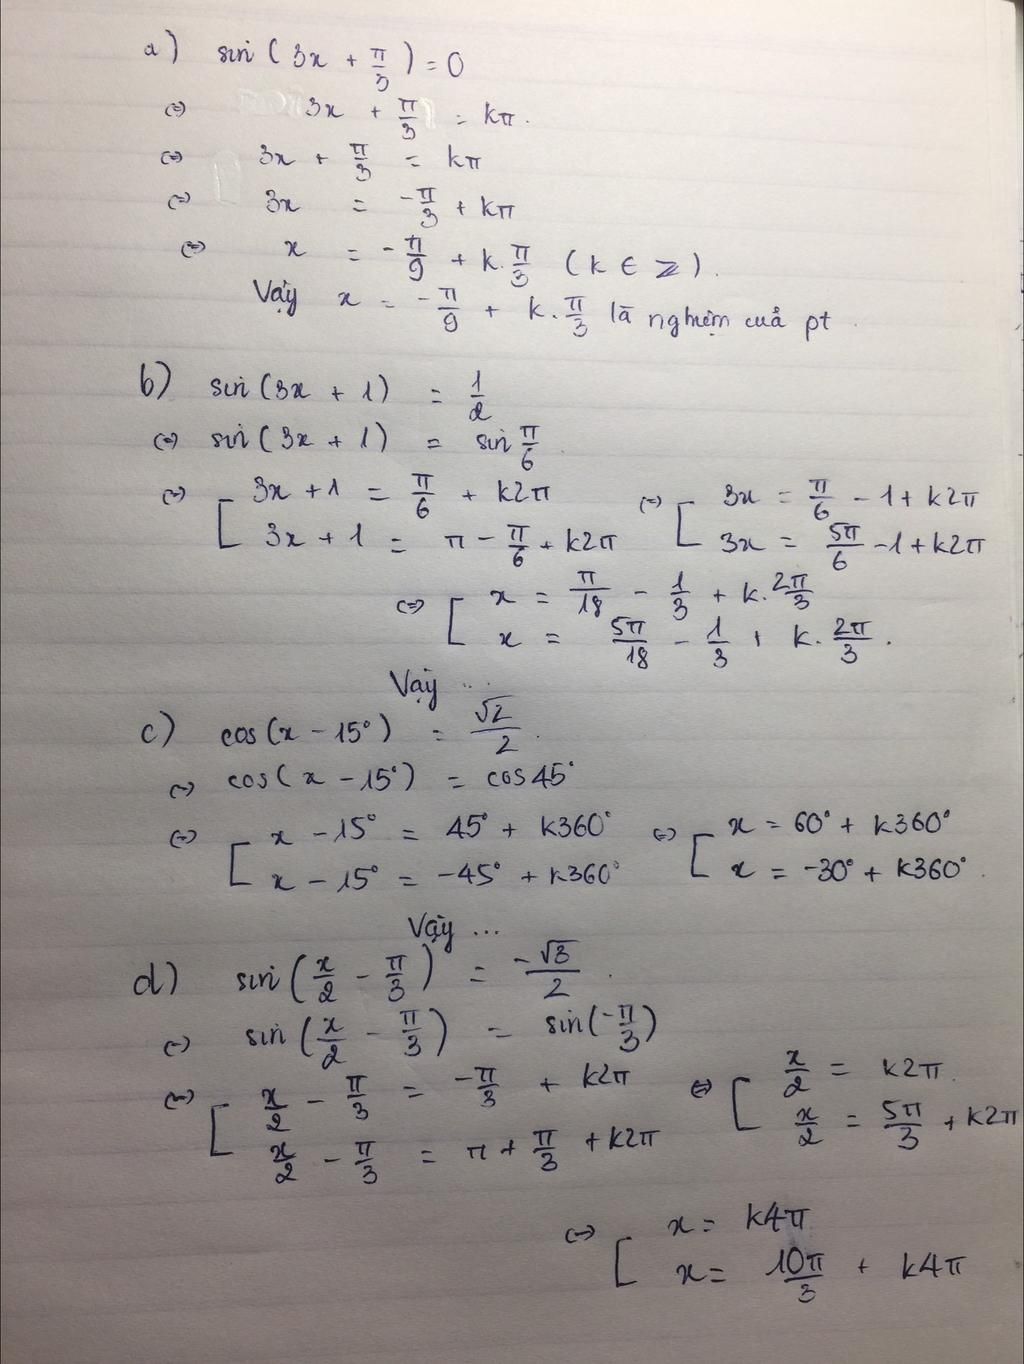 a) sin(3x + π/3) = 0
⇔ 3x + π/3 = kπ.
⇔ 3x + π/3 = kπ
⇔ 3x = -π/3 + kπ
⇔ x = -π/9 + k.π/3 (k ∈ Z).
Vậy x = -π/9 + k.π/3 là nghiệm cuả pt.
b) sin(3x + 1) = 1/2
⇔ sin(3x + 1) = sin π/6
⇔ [ 3x + 1 = π/6 + k2π ⇔ [ 3x = π/6 - 1 + k2π
3x + 1 = π - π/6 + k2π 3x = 5π/6 - 1 + k2π
⇔ [ x = π/18 - 1/3 + k.2π/3
x = 5π/18 - 1/3 + k.2π/3.
Vậy ...
c) cos(x - 15°) = √2/2.
⇔ cos(x - 15°) = cos45°
⇔ [ x - 15° = 45° + k360° ⇔ [ x = 60° + k360°
x - 15° = -45° + k360° x = -30° + k360°.
Vậy ...
d) sin(x/2 - π/3) = -√3/2.
⇔ sin(x/2 - π/3) = sin(-π/3)
⇔ [ x/2 - π/3 = -π/3 + k2π ⇔ [ x/2 = k2π.
x/2 - π/3 = π + π/3 + k2π x/2 = 5π/3 + k2π
⇔ [ x = k4π
x = 10π/3 + k4π